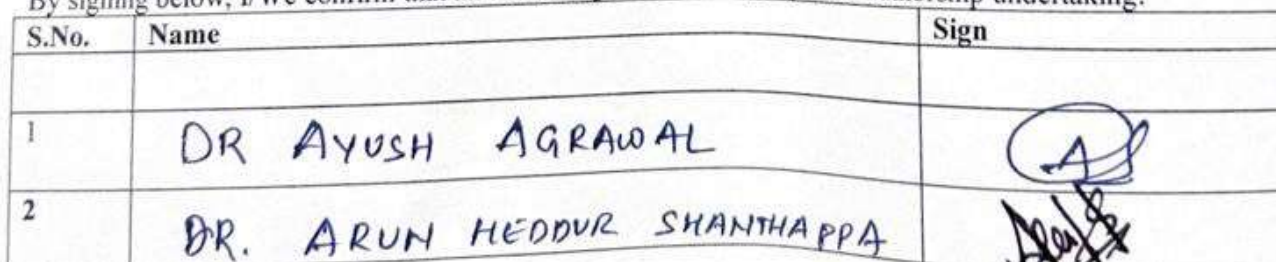 By signing below, I/We confirm undertaking.
S.No. Name Sign
1 DR AYUSH AGRAWAL
2 DR. ARUN HEDDUR SHANTHAPPA